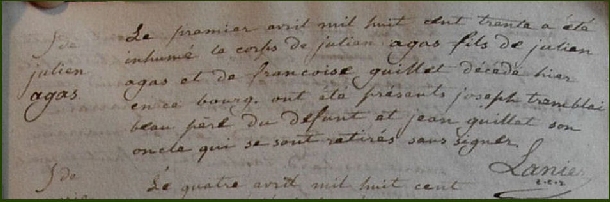 S de
julien
agas
Le premier avril mil huit cent trente a été
inhumé le corps de julien agas fils de julien
agas et de francoise guillet décédé hier
en ce bourg. ont été présents joseph tremblai
beau père du défunt et jean guillet son
oncle qui se sont retirés sans signer
Lanier
S de
Le quatre avril mil huit cent